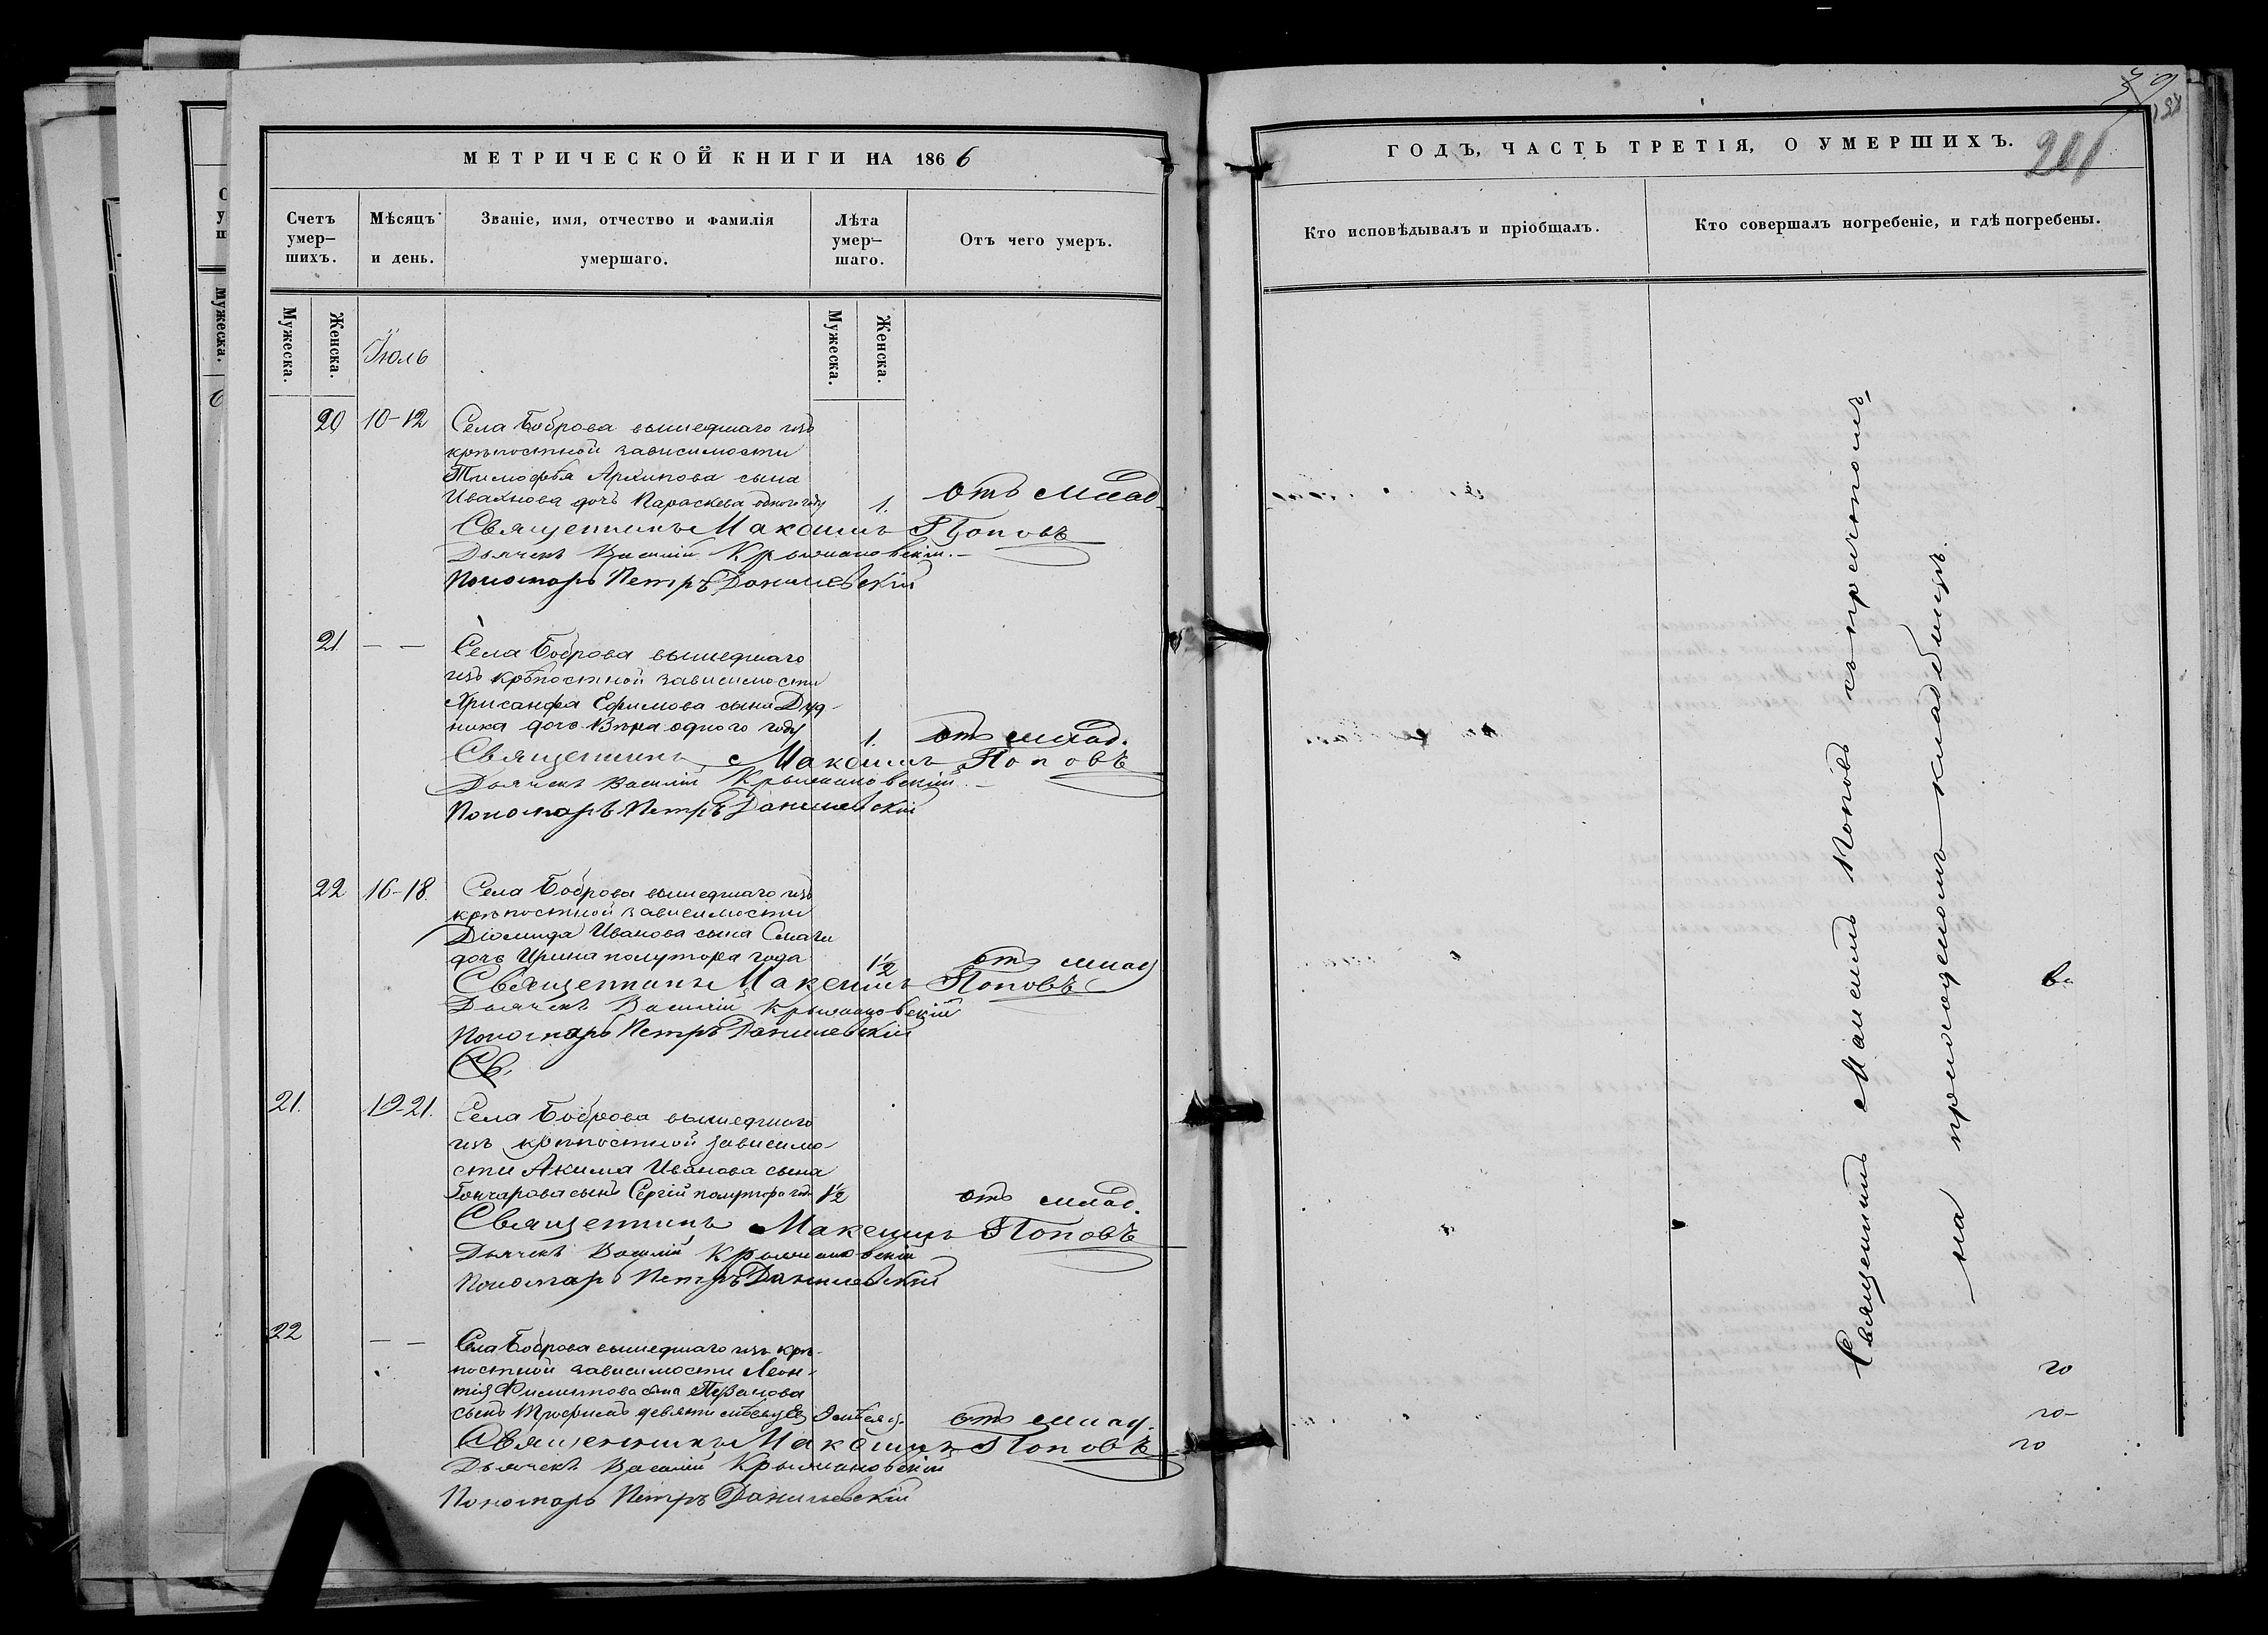 МЕТРИЧЕСКОЙ КНИГИ НА 1866
Счетъ умер–шихъ.
Мѣсяцъ и день.
Званіе, имя, отчество и фамилія умершаго.
Лѣта умер–шаго.
Отъ чего умеръ.
Мужеска.
Женска.
Іюль
Мужеска.
Женска.
20 10-12 Села Боброва вышедшаго изъ
крѣпостной зависимости
Тимофѣя Архипова сына
Ивахнова дочь Параскева одного году 1. отъ млад
Священникъ Максимъ Поповъ
Дьячекъ Василій Крыжановскій.
Пономарь Петръ Данилевскій
21 — — Села Боброва вышедшаго
изъ крѣпостной зависимости
Хрисанфа Ефимова сына Дуд-
ника дочь Вѣра одного году 1. отъ млад.
Священникъ Максимъ Поповъ
Дьячекъ Василій Крыжановскій
Пономарь Петръ Данилевскій
22 16-18. Села Боброва вышедшаго изъ
крѣпостной зависимости
Діомида Иванова сына
дочь Ирина полутора года 1½ отъ млад
Священникъ Максимъ Поповъ
Дьячекъ Василій Крыжановскій
Пономарь Петръ Данилевскій
Св.
21. 19-21. Села Боброва вышедшаго
изъ крѣпостной зависимо
сти Акима Иванова сына
Гончарова сынъ Сергій полутора года 1½ отъ млад.
Священникъ Максимъ Поповъ
Дьячекъ Василій Крыжановскій
Пономарь Петръ Данилевскій
22 — — Села Боброва вышедшаго изъ крѣ-
постной зависимости Леон-
тія Филиппова сына
сынъ Трофимъ девяти мѣсяцев 9 мѣсяц. отъ млад.
Священникъ Максимъ Поповъ
Дьячекъ Василій Крыжановскій
Пономарь Петръ Данилевскій
ГОДЪ, ЧАСТЬ ТРЕТІЯ, О УМЕРШИХЪ.
Кто исповѣдывалъ и пріобщалъ.
Кто совершалъ погребеніе, и гдѣ погребены.
Священникъ Максимъ Поповъ съ причтомъ
на приходскомъ кладбищѣ.
го
го-
го